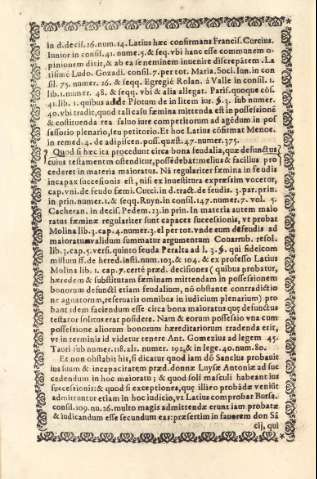 in d. decis. 26. num. 14. Latius hæc confirmans Francis. Cureius.
Iunior in consil. 41. nume. 5. & seq. vbi hanc esse communem o-
pinionem dicit, & ab ea se neminem inuenire discrepãtem. La
tissimè Ludo. Gozadi. consil. 7. per tot. Maria. Soci. Iun. in con
sil. 75. numer. 26. & seqq. Egregiè Rolan. à Valle in consil. 1.
lib. 1. numer. 48. & seqq. vbi & alia allegat. Paris. quoque cõs.
41. lib. 1. quibus adde Plotum de in litem iur. §. 3. sub numer.
40. vbi tradit, quod tali casu fæmina mittenda est in possessionẽ
& costituenda rea saluo iure competiorum ad agẽdum in pos
sessorio plenario, seu petitorio. Et hoc Latius cõfirmat Menoc.
in remed. 4. de adipiscen. poss. quæst. 47. numer. 375.
Quod si hæc ita procedunt circa bona feudalia, quæ defunctus
cuius testamentum ostenditur, possidebat: melius & facilius pro
cederet in materia maioratus. Nã regulariter fæmina in feudis
incapax successionis est, nisi ex inuestitura expressim vocetur,
cap. vni. de feudo fæmi. Curci. in d. tract. de feudis. 3. par. prin.
in prin. numer. 1. & seqq. Ruyn. in consil. 147. numer. 7. vol. 5.
Cacheran. in decis. Pedem. 23. in prin. In materia autem maio
ratus feminæ regulariter sunt capaces successionis, vt probat
Molina lib. 3. cap. 4. numer. 3. el per tot. vnde eum de feudis ad
maioratum validum summatur argumentum Couarrub. resol.
lib. 3. cap. 5. vers. quinto feuda Peralta ad l. 3. §. qui fideicom
missum ff. de hered. insti. num. 103. & 104. & ex professo Latius
Molina lib. 1. cap. 7. certè præd. decisiones (quibus probatur,
hæredem & substitutam fæminam mittendam in possessionem
bonorum defuncti etiam feudalium, nõ obstante contradictio
ne agnatorum, reseruatis omnibus in iudicium plenarium) pro
bant idem faciendum esse circa bona maioratus quę defunctus
testator solitus erat possidere. Nam & eorum possessio vna cum
possessione aliorum bonorum hæreditariorum tradenda erit,
vt in terminis id videtur tenere Ant. Gomezius ad legem 45.
Tauri sub numer. 118. als. numer. 192. & in lege. 40. num. 80.
Et non obstabit his, si dicatur quod iam dõ Sancius probauit
ius suum & incapacitatem præd. donnæ Luysæ Antoniæ ad suc
cedendum in hoc maioratu; & quod soli masculi habeant ius
successionis: & quod si exceptiones, quę illico probãdæ venisẽt
admitrantur etiam in hoc iudicio, vt Latius comprobat Bursa.
consil. 109. nu. 26. multo magis admittendæ erunt iam probatæ
& iudicandum esse secundum eas: præsertim in fauorem don Sã
cij, qui